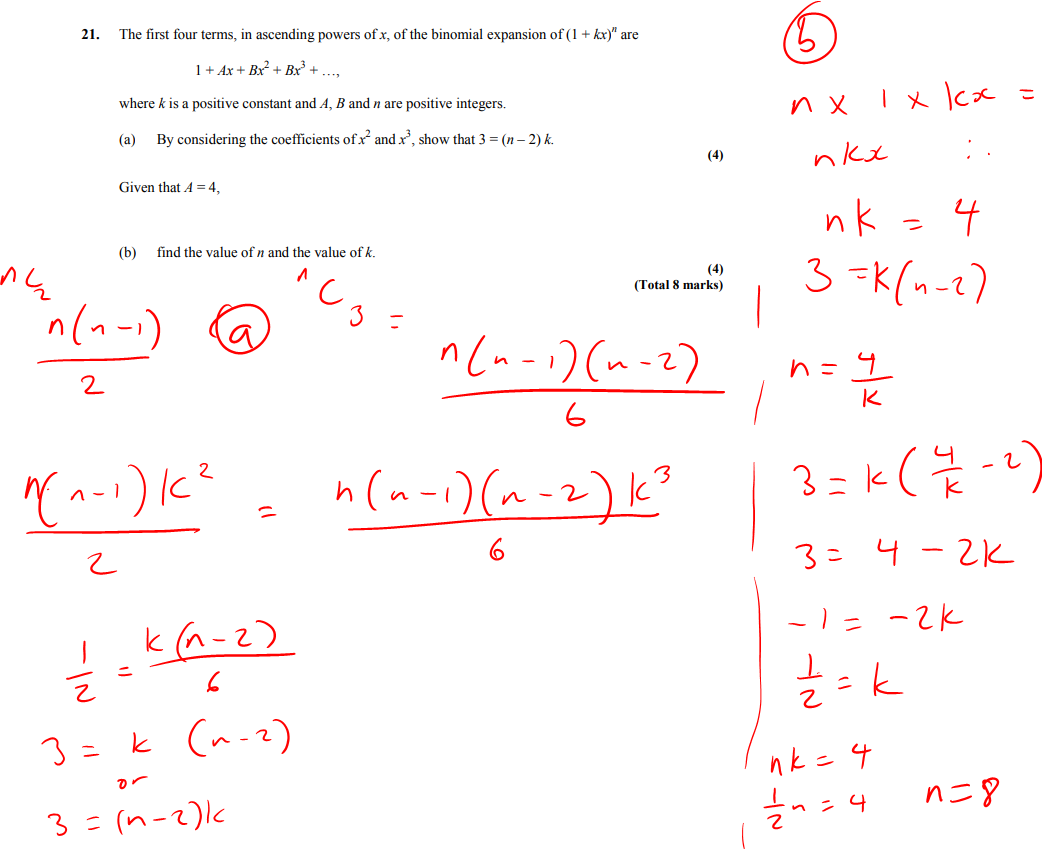 21. The first four terms, in ascending powers of x, of the binomial expansion of (1 + kx)ⁿ are
1 + Ax + Bx² + Bx³ + …,
where k is a positive constant and A, B and n are positive integers.
(a) By considering the coefficients of x² and x³, show that 3 = (n – 2) k.
(4)
Given that A = 4,
(b) find the value of n and the value of k.
(4)
(Total 8 marks)
(a)
ⁿC₂
n(n-1)/2
ⁿC₃ = n(n-1)(n-2)/6
n(n-1)k²/2 = n(n-1)(n-2)k³/6
1/2 = k(n-2)/6
3 = k (n-2)
or
3 = (n-2)k
(b)
n x 1 x kx =
nkx ∴
nk = 4
3 = k(n-2)
n = 4/k
3 = k(4/k - 2)
3 = 4 - 2k
-1 = -2k
1/2 = k
nk = 4
1/2 n = 4 n=8